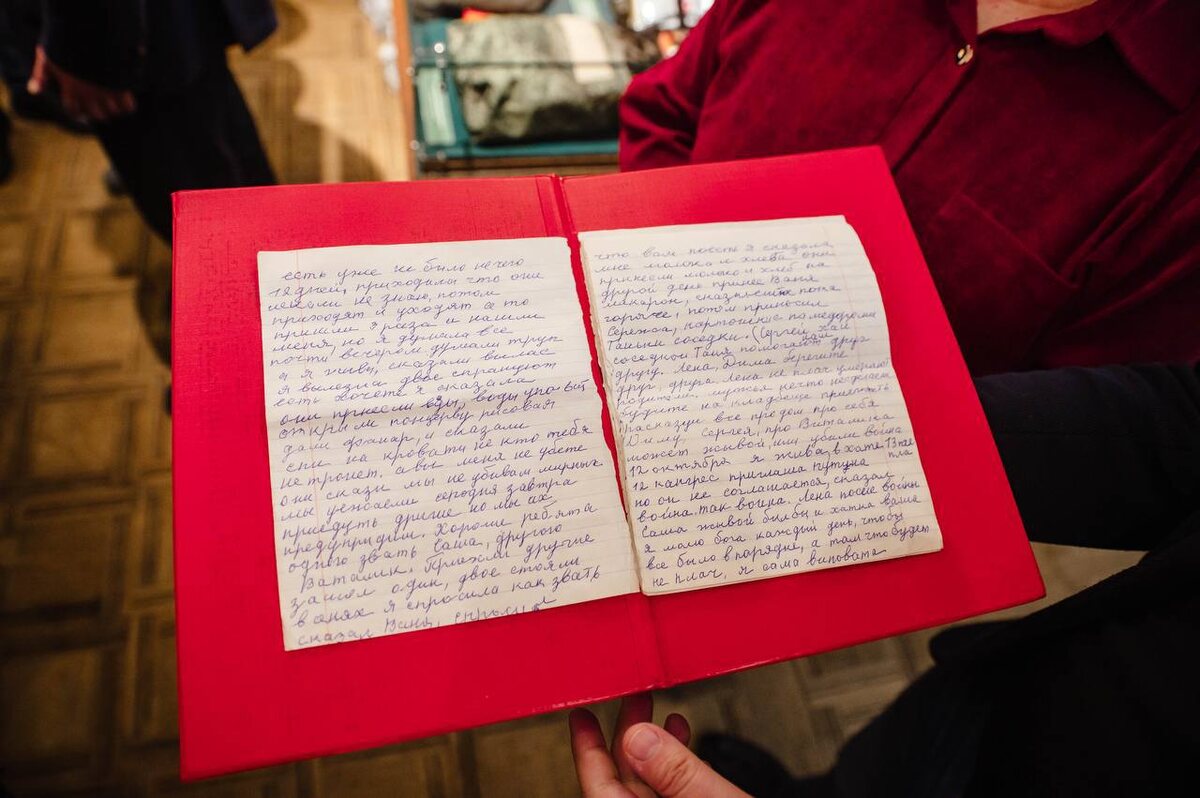 есть уже не було нечего
12 дней, приходили что они
не знаю, потом
приходят и уходят а то
пришли 3 раза и нашли
меня но я думала все
почти вечером думали труп
а я жива, сказали вылас
я вылезла двое спрашуют
есть хочете я сказала
они принесли еды, воды упаковц
открыли консерву рисовая
дали фонар, и сказали
спи на кровати не кто тебя
не тронет, а вы меня не убете
они сказали мы не убивам мирных
мы уежаем сегодня завтра
приедуть другие но мы их
предупридим. Хороше ребята
одного звать Саша, другого
Виталик. Приехали другие
зашел один, двое стояли
в сенях я спросила как звать
сказал Ваня,
что вам
мне молока и хлеба они
принесли молько и хлеб на
другой день принес Ваня
макарон, сказал
горяче, потом приносил
Сережа, картошние помедроми
Таньки соседки. (Сергей
соседкой Таня помогают друг
другу. Лена, Дима берегите
друг, друга Лена не плач умерают
родители, мужья нечго не делаеш
будите на кладбище приежать
расказую все про дом про себя
Диму, Сергея, про Виталика
может живой, или убили война
12 октября я жива, в хате 13 пае
12 кангрес приглаша путуна
но он не соглашается, сказал
война так война. Лена после войны
Саша живой былбы и хатна ваша
я молю бога каждый день, чтобы
все было в порядке, а там что будет
не плач, я сама виповата